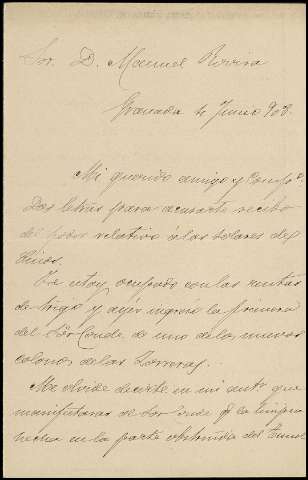 Sor. D. Manuel Rovira
Granada 4 Junio 908.
Mi querido amigo y Compº.
Dos letras para acusarte recibo
del poder relativo á los solares de
Ya estoy ocupado con las rentas
de trigo y ayer ingresó la primera
del Sor Conde de uno de los nuevos
colonos de las Torres.
Me olvidé decirte en mi antr. que
manifestaras al Sor Conde qe. la limpia
hecha en la parte obstruida del tunel